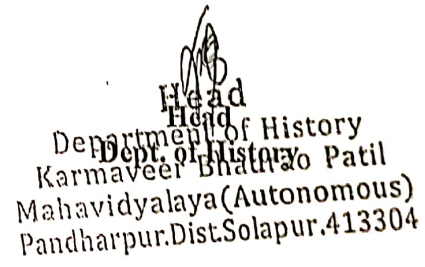 Head
Head
Department of History
Dept. of History
Karmaveer Bhaurao Patil
Mahavidyalaya(Autonomous)
Pandharpur.Dist.Solapur.413304